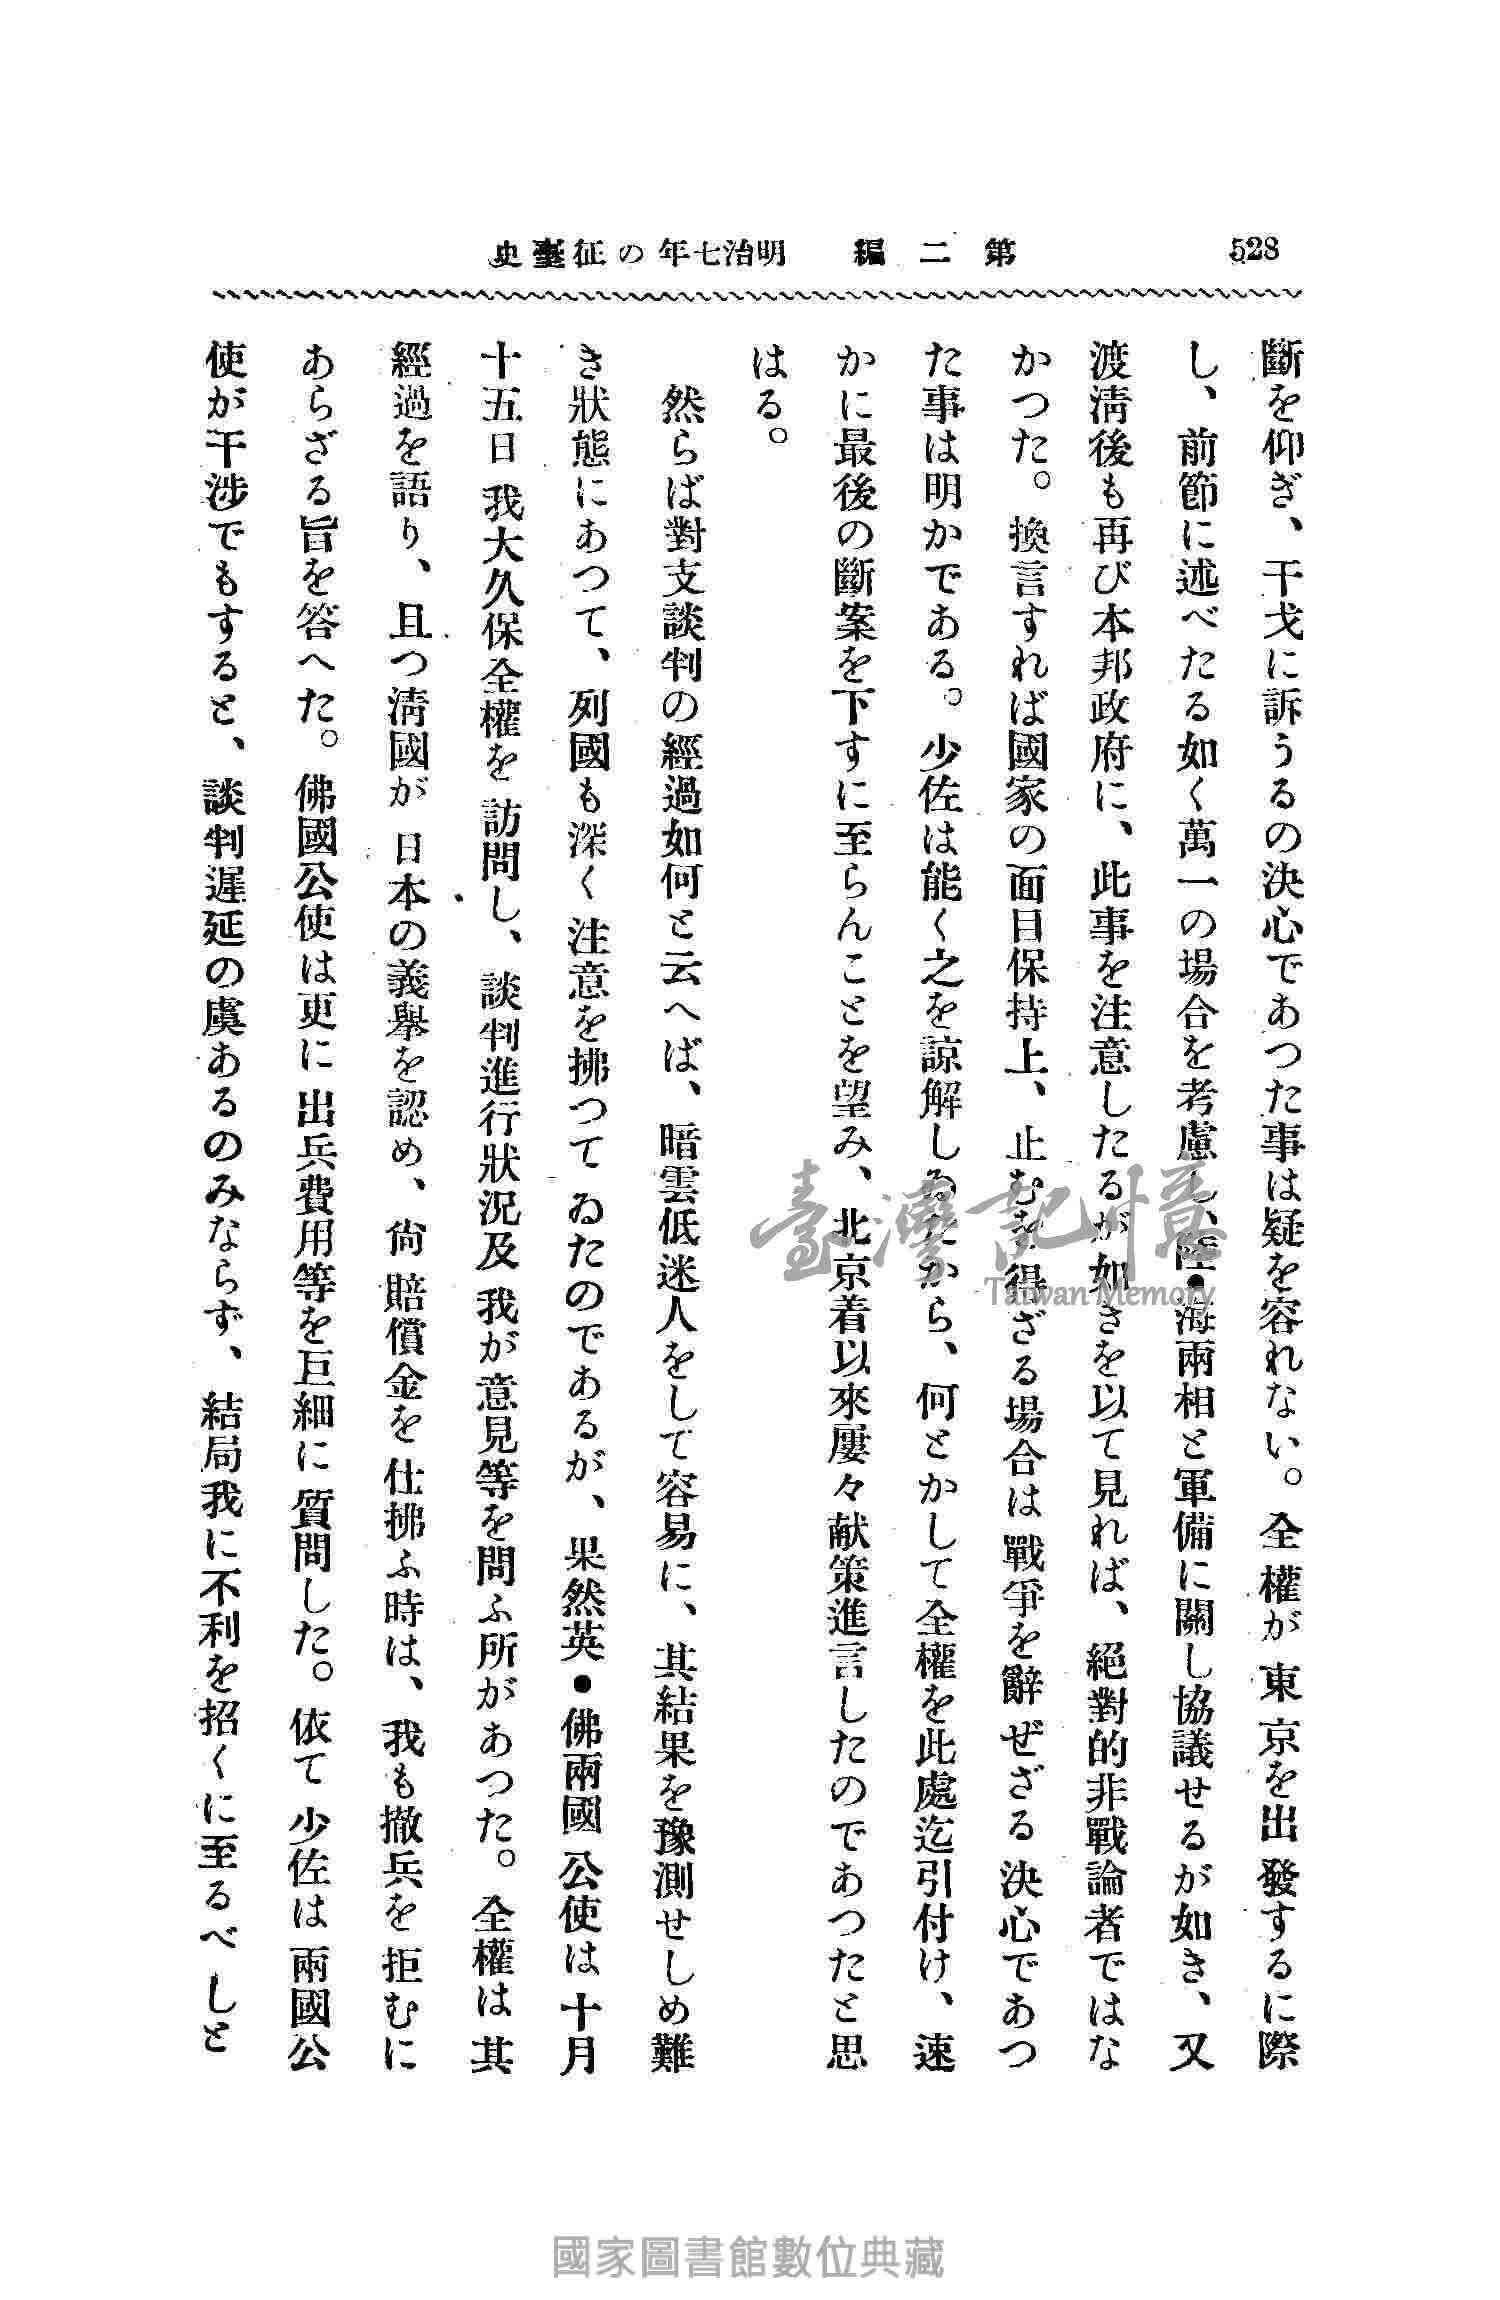 528
第二編 明治七年の征臺史
斷を仰ぎ、干戈に訴うるの決心であつた事は疑を容れない。全權が東京を出發するに際
し、前節に述べたる如く萬一の場合を考慮し、陸●海兩相と軍備に關し協議せるが如き、又
渡淸後も再び本邦政府に、此事を注意したるが如きを以て見れば、絕對的非戰論者ではな
かつた。換言すれば國家の面目保持上、止むを得ざる場合は戰爭を辭ぜざる決心であつ
た事は明かである。少佐は能く之を諒解しゐたから、何とかして全權を此處迄引付け、速
かに最後の斷案を下すに至らんことを望み、北京着以來屢々献策進言したのであつたと思
はる。
然らば對支談判の經過如何と云へば、暗雲低迷人をして容易に、其結果を豫測せしめ難
き狀態にあつて、列國も深く注意を拂つてゐたのであるが、果然英●佛兩國公使は十月
十五日我大久保全權を訪問し、談判進行狀況及我が意見等を問ふ所があつた。全權は其
經過を語り、且つ淸國が日本の義擧を認め、尙賠償金を仕拂ふ時は、我も撤兵を拒むに
あらざる旨を答へた。佛國公使は更に出兵費用等を巨細に質問した。依て少佐は兩國公
使が干涉でもすると、談判遲延の虞あるのみならず、結局我に不利を招くに至るべしと
臺灣記憶
Taiwan Memory
國家圖書館數位典藏